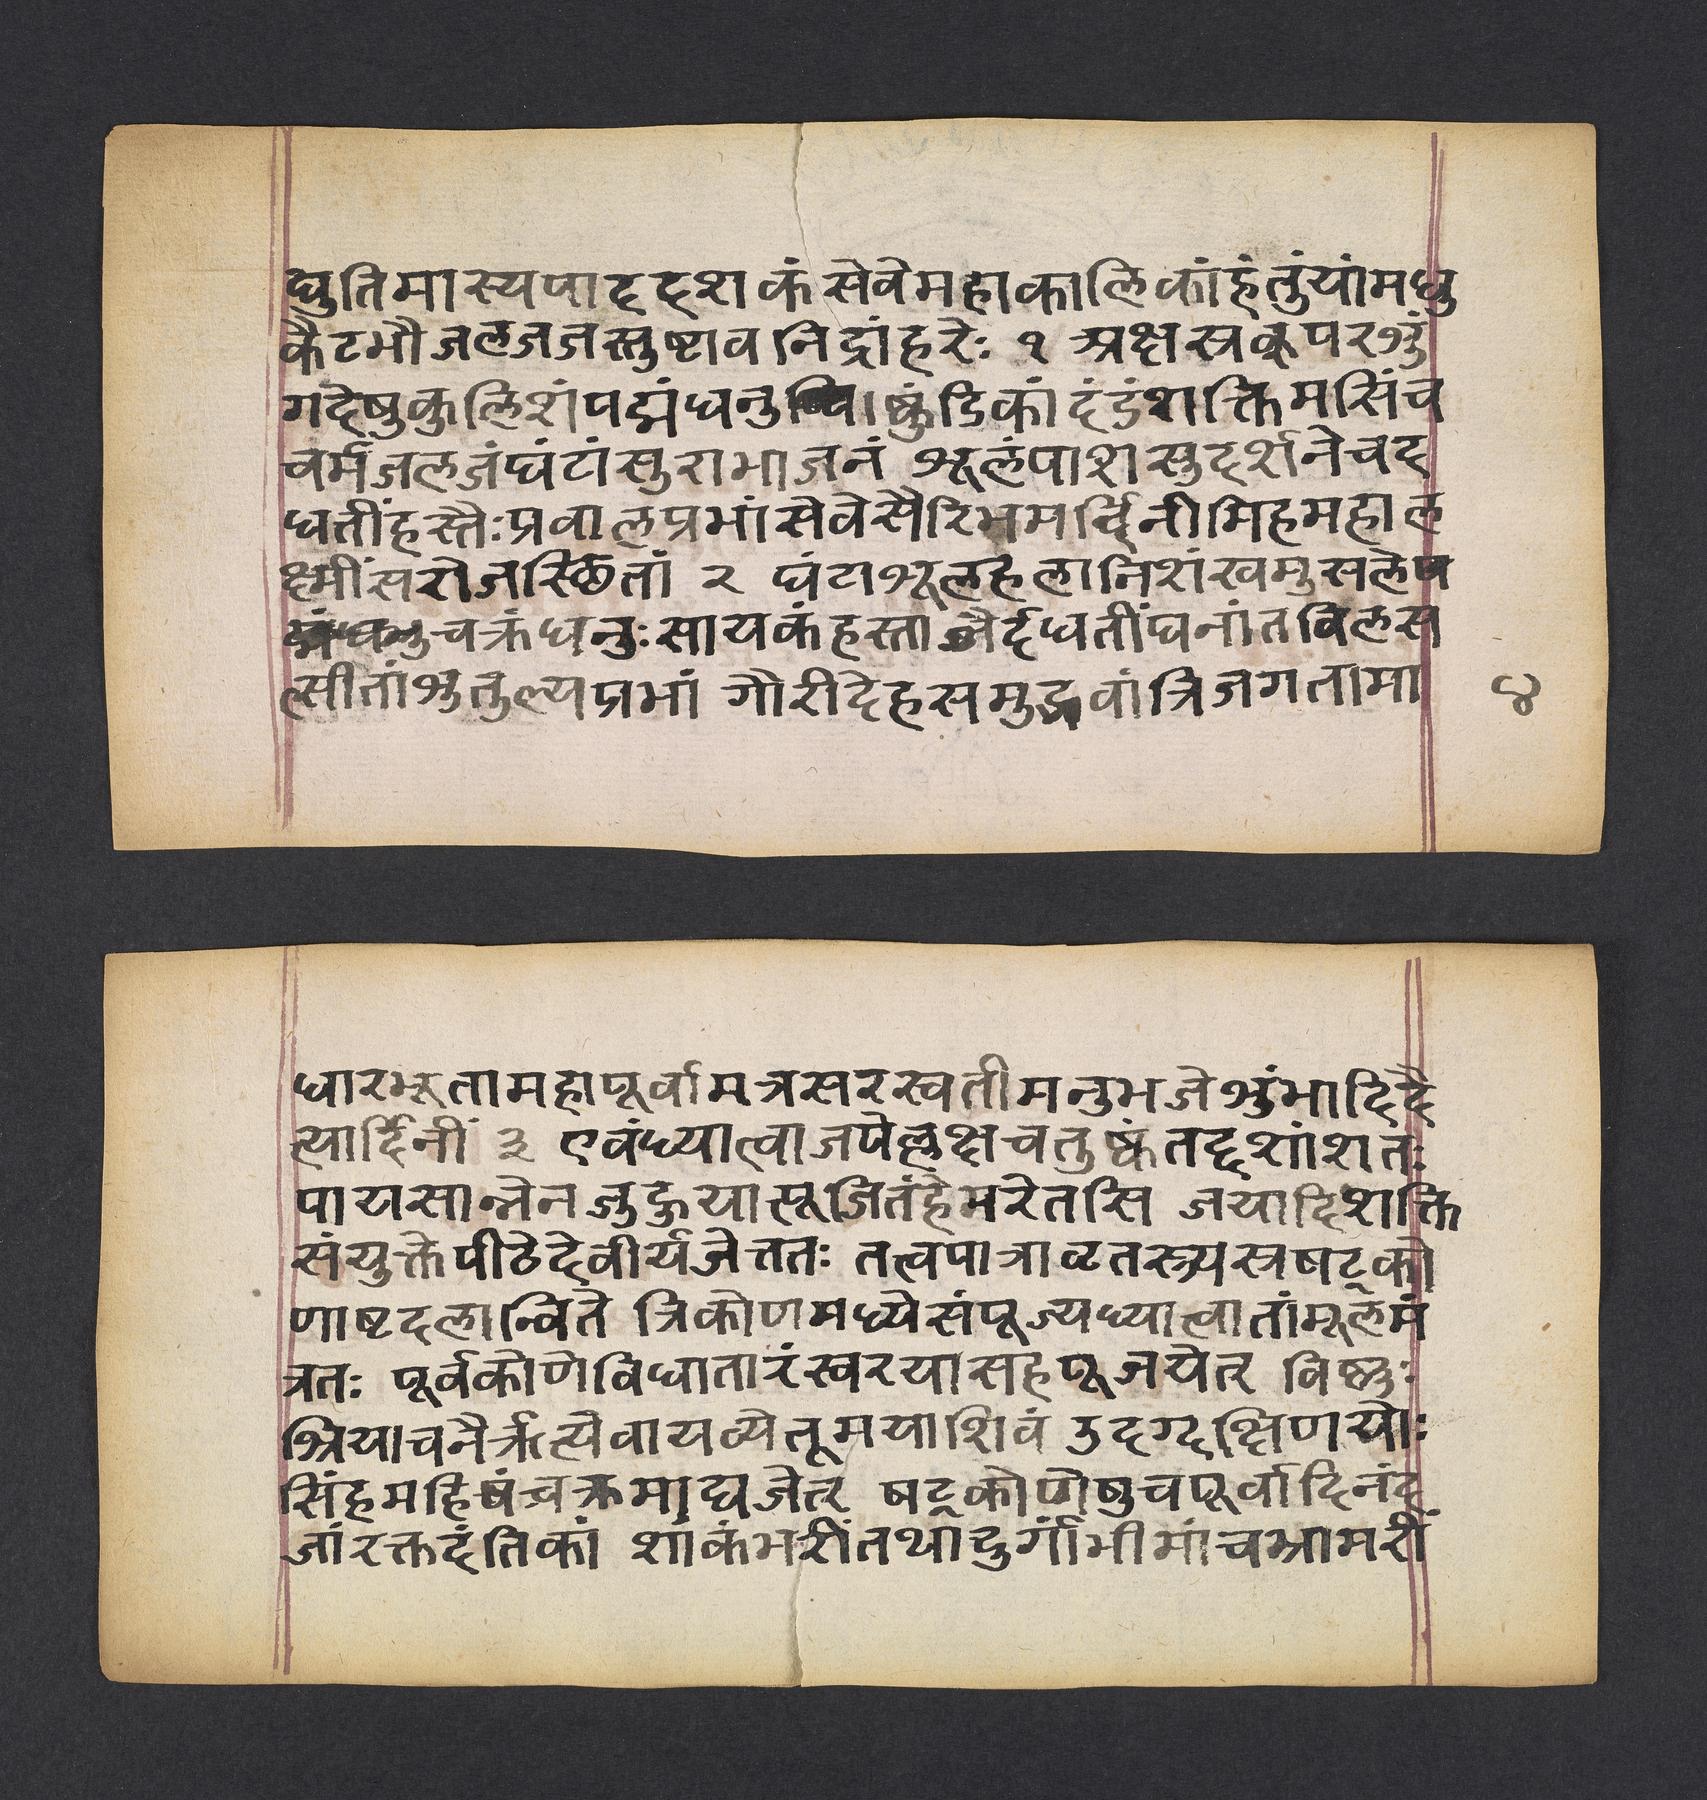 द्युतिमास्यपाददशकंसेवेमहाकालिकांहंतुंयांमधु
कैटभौजलजजस्तुष्टावनिद्रांहरेः १ अक्षस्रक्परशुं
गदेषुकुलिशंपद्मंधनुष्कुंडिकांदंडंशक्तिमसिंच
चर्मजलजंघंटांसुराभाजनं शूलंपाशसुदर्शनेचद
धतींहस्तैःप्रवालप्रभांसेवेसैरिभमर्द्दिनीमिहमहाल
क्ष्मींसरोजस्थितां २ घंटाशूलहलानिशंखमुसलेप
चक्रंधनुःसायकंहस्ताब्जैर्दधतींघनांतविलस
त्सीतांशुतुल्यप्रभां गौरीदेहसमुद्भवांत्रिजगतामा
४
धारभूतामहापूर्वामत्रसरस्वतीमनुभजेशुंभादिदै
त्यार्दिनीं ३ एवंध्यात्वाजपेल्लक्षचतुष्कंतद्दशांशतः
पायसान्नेनजुहुयात्पूजितेहेमरेतसि जयादिशक्ति
संयुक्तेपीठेदेवीर्यजेत्ततः तत्त्वपात्रावृतस्त्र्यस्रषट्को
णाष्टदलान्विते त्रिकोणमध्येसंपूज्यध्यात्वातांमूलमं
त्रतः पूर्वकोणेविधातारंस्वरयासहपूजयेत् विष्णुः
श्रियाचनैर्ऋत्येवायव्येतूमयाशिवं उदग्दक्षिणयोः
सिंहमहिषंचक्रमाद्यजेत् षट्कोणेषुचपूर्वादिनंद
जांरक्तदंतिकां शाकंभरींतथादुर्गांभीमांचभ्रामरीं